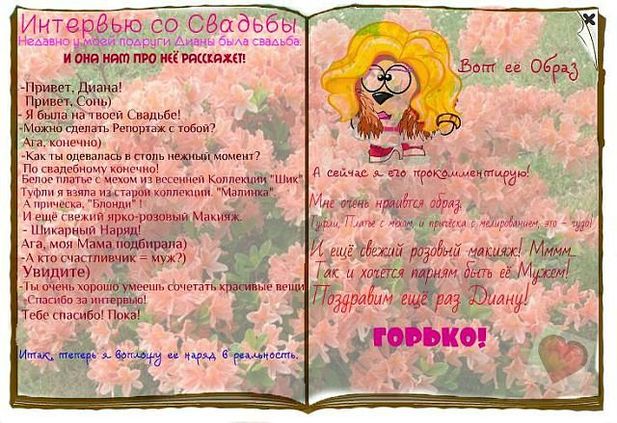 Интервью со Свадьбы
Недавно у моей подруги Дианы была свадьба.
И ОНА НАМ ПРО НЕЁ РАССКАЖЕТ!
-Привет, Диана!
Привет, Сонь)
- Я была на твоей Свадьбе!
-Можно сделать Репортаж с тобой?
Ага, конечно)
-Как ты одевалась в столь нежный момент?
По свадебному конечно!
Белое платье с мехом из весенней Коллекции "Шик"
Туфли я взяла из старой коллекции. "Малинка"
А прическа, "Блонди" !
И ещё свежий ярко-розовый Макияж.
- Шикарный Наряд!
Ага, моя Мама подбирала)
-А кто счастливчик = муж?)
Увидите)
-Ты очень хорошо умеешь сочетать красивые вещи
-Спасибо за интервью!
Тебе спасибо! Пока!
Итак, теперь я воплощу ее наряд в реальность.
Вот ее Образ
А сейчас я его прокомментирую!
Мне очень нраивтся образ,
Туфли, Платье с мехом, и причёска с мелированием, это - чудо!
И ещё свежий розовый макияж! Мммм..
Так и хочется парням быть её Мужем!
Поздравим ещё раз Диану!
ГОРЬКО!